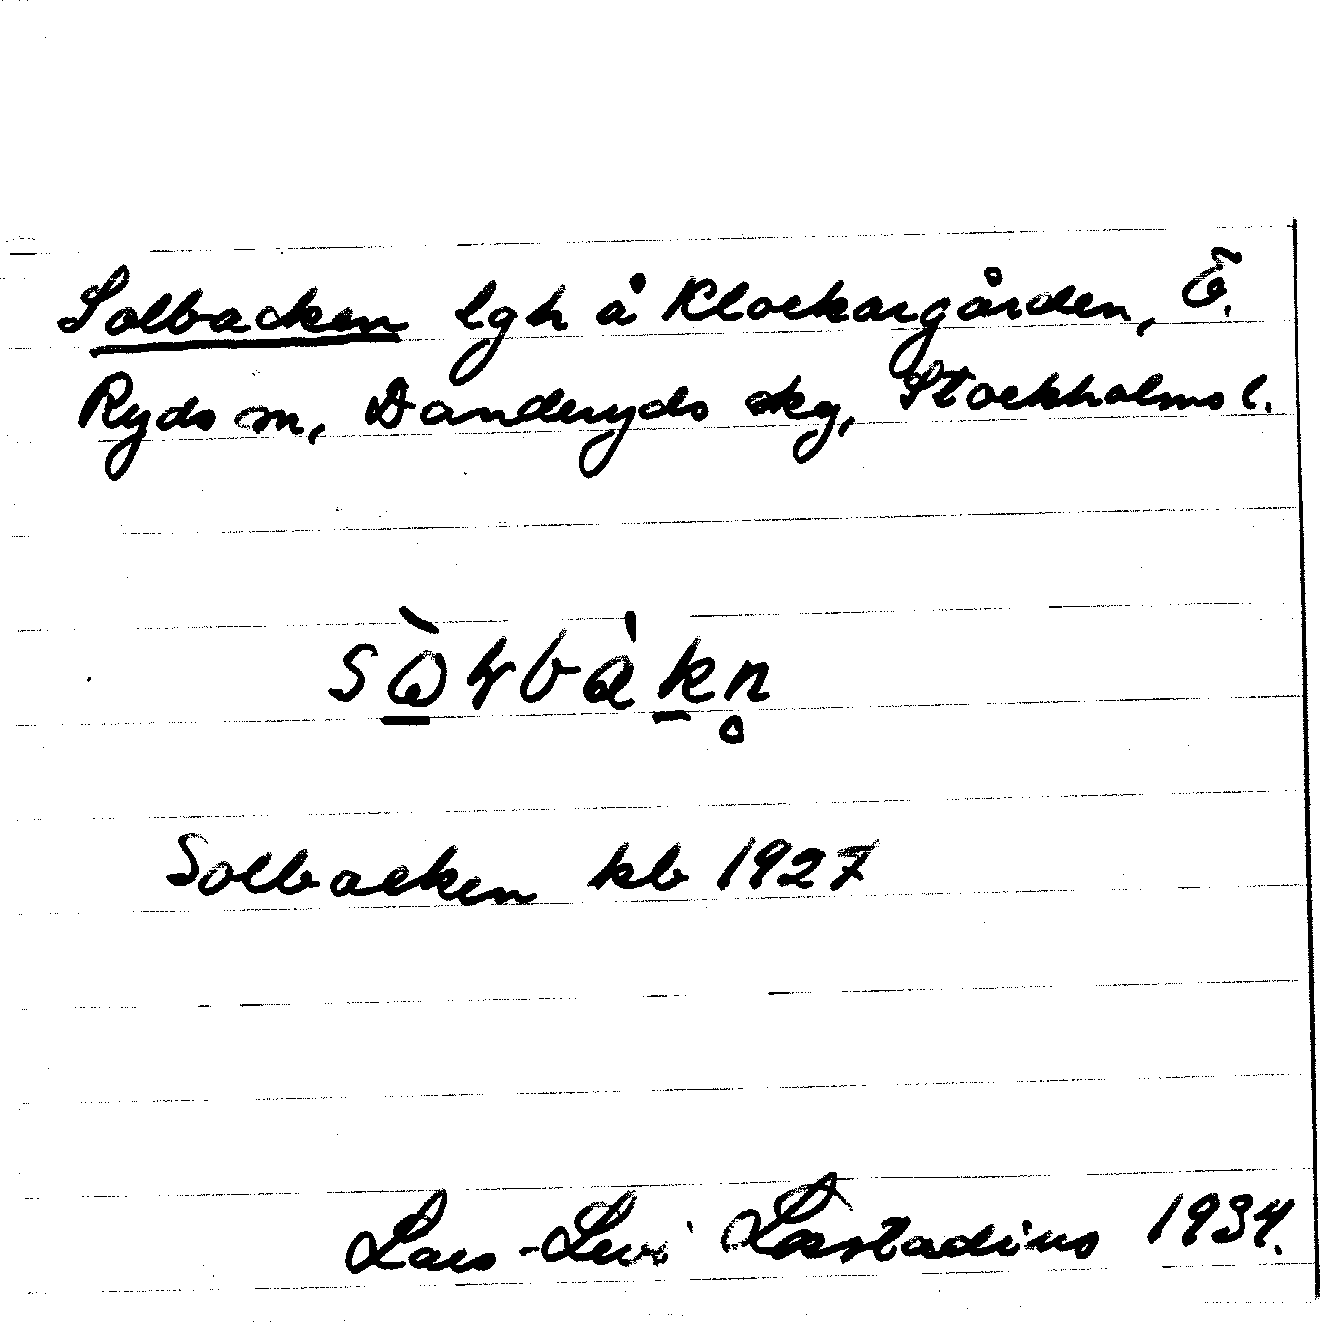 Solbacken lgh å Klockargården, Ö.
Ryds sn, Danderyds skg, Stockholms l.
Solbacken kb 1927
Lars-Levi Læstadius 1934.